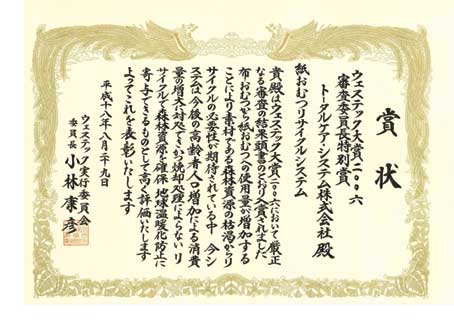 賞状
ウェステック大賞二〇〇六
審査委員長特別賞
トータルケアシステム株式会社 殿
紙おむつリサイクルシステム
貴殿はウェステック大賞二〇〇六において厳正
なる審査の結果頭書のとおり入賞されました
布おむつから紙おむつへの使用量が増加する
ことにより素材である森林資源の枯渇からリ
サイクルの必要性が期待されている中 今シ
ステムは今後の高齢者人口増加による消費
量の増大に対処でき かつ焼却処理によらない リ
サイクルで森林資源を確保 地球温暖化防止に
寄与できるものとして高く評価いたします
よってこれを表彰いたします
平成十八年八月二十九日
ウェステック実行委員会
委員長 小林康彦